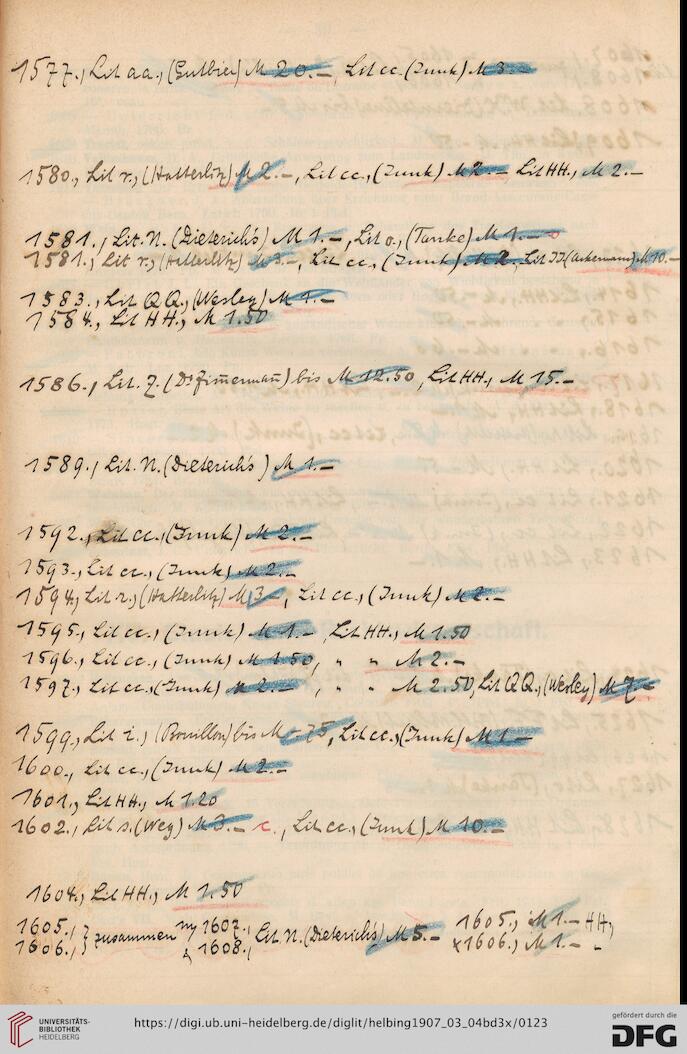 1577., Lit aa., (Gutbier) M 20.–, Lit cc. (Junk) M 3.–
1580., Lit r., (Hatterlitz) M 2.–, Lit cc., (Junk) M 2.– Lit HH., M 2.–
1581., Lit. N. (Dieterichs) M 1.–, Lit o., (Tanke) M 1.–
1581., Lit r., (Hatterlitz) M 3.–, Lit cc., (Junk) M 2., Lit JJ (Ackermann) M 10.–
1583., Lit QQ., (Wesley) M 1.–
1584., Lit HH., M 1.50
1586., Lit. Z. (Dr Zimermann) bis M 12.50, Lit HH., M 15.–
1589., Lit. N. (Dieterichs) M 1.–
1592., Lit cc., (Junk) M 2.–
1593., Lit cc., (Junk) M 2.–
1594., Lit r., (Hatterlitz) M 3.–, Lit cc., (Junk) M 2.–
1595., Lit cc., (Junk) M 1.–, Lit HH., M 1.50
1596., Lit cc., (Junk) M 1.50, " " M 2.–
1597., Lit cc., (Junk) M 2.–, " " M 2.50, Lit QQ., (Wesley) M 7.–
1599., Lit i., (Bouillon) bis M –.75, Lit cc., (Junk) M 1.–
1600., Lit cc., (Junk) M 2.–
1601., Lit HH., M 1.20
1602., Lit s. (Weg) M 3.– c., Lit cc., (Junk) M 10.–
1604., Lit HH., M 1.50
1605., } zusammen 1607., Lit. N. (Dieterichs) M 5.– 1605., M 1.– HH.,
1606., } & 1608., x1606., M 1.– "
UNIVERSITÄTS-
BIBLIOTHEK
HEIDELBERG
https://digi.ub.uni-heidelberg.de/diglit/helbing1907_03_04bd3x/0123
gefördert durch die
DFG